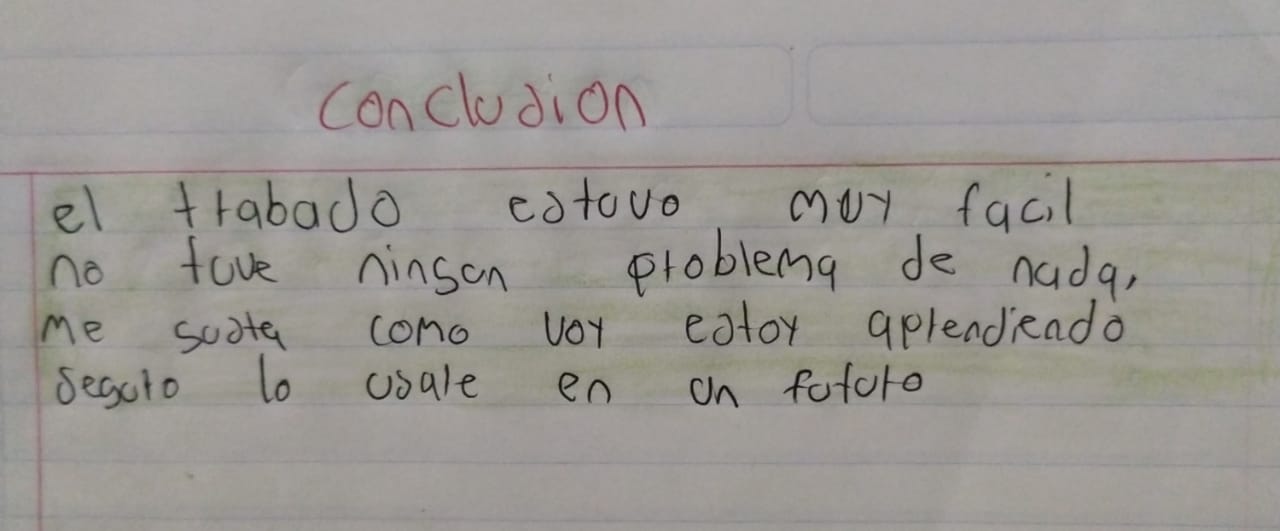 Conclusion
el trabajo estuvo muy facil
no tuve ningun problema de nada,
Me gusta como voy estoy aprendiendo
seguro lo usare en un futuro